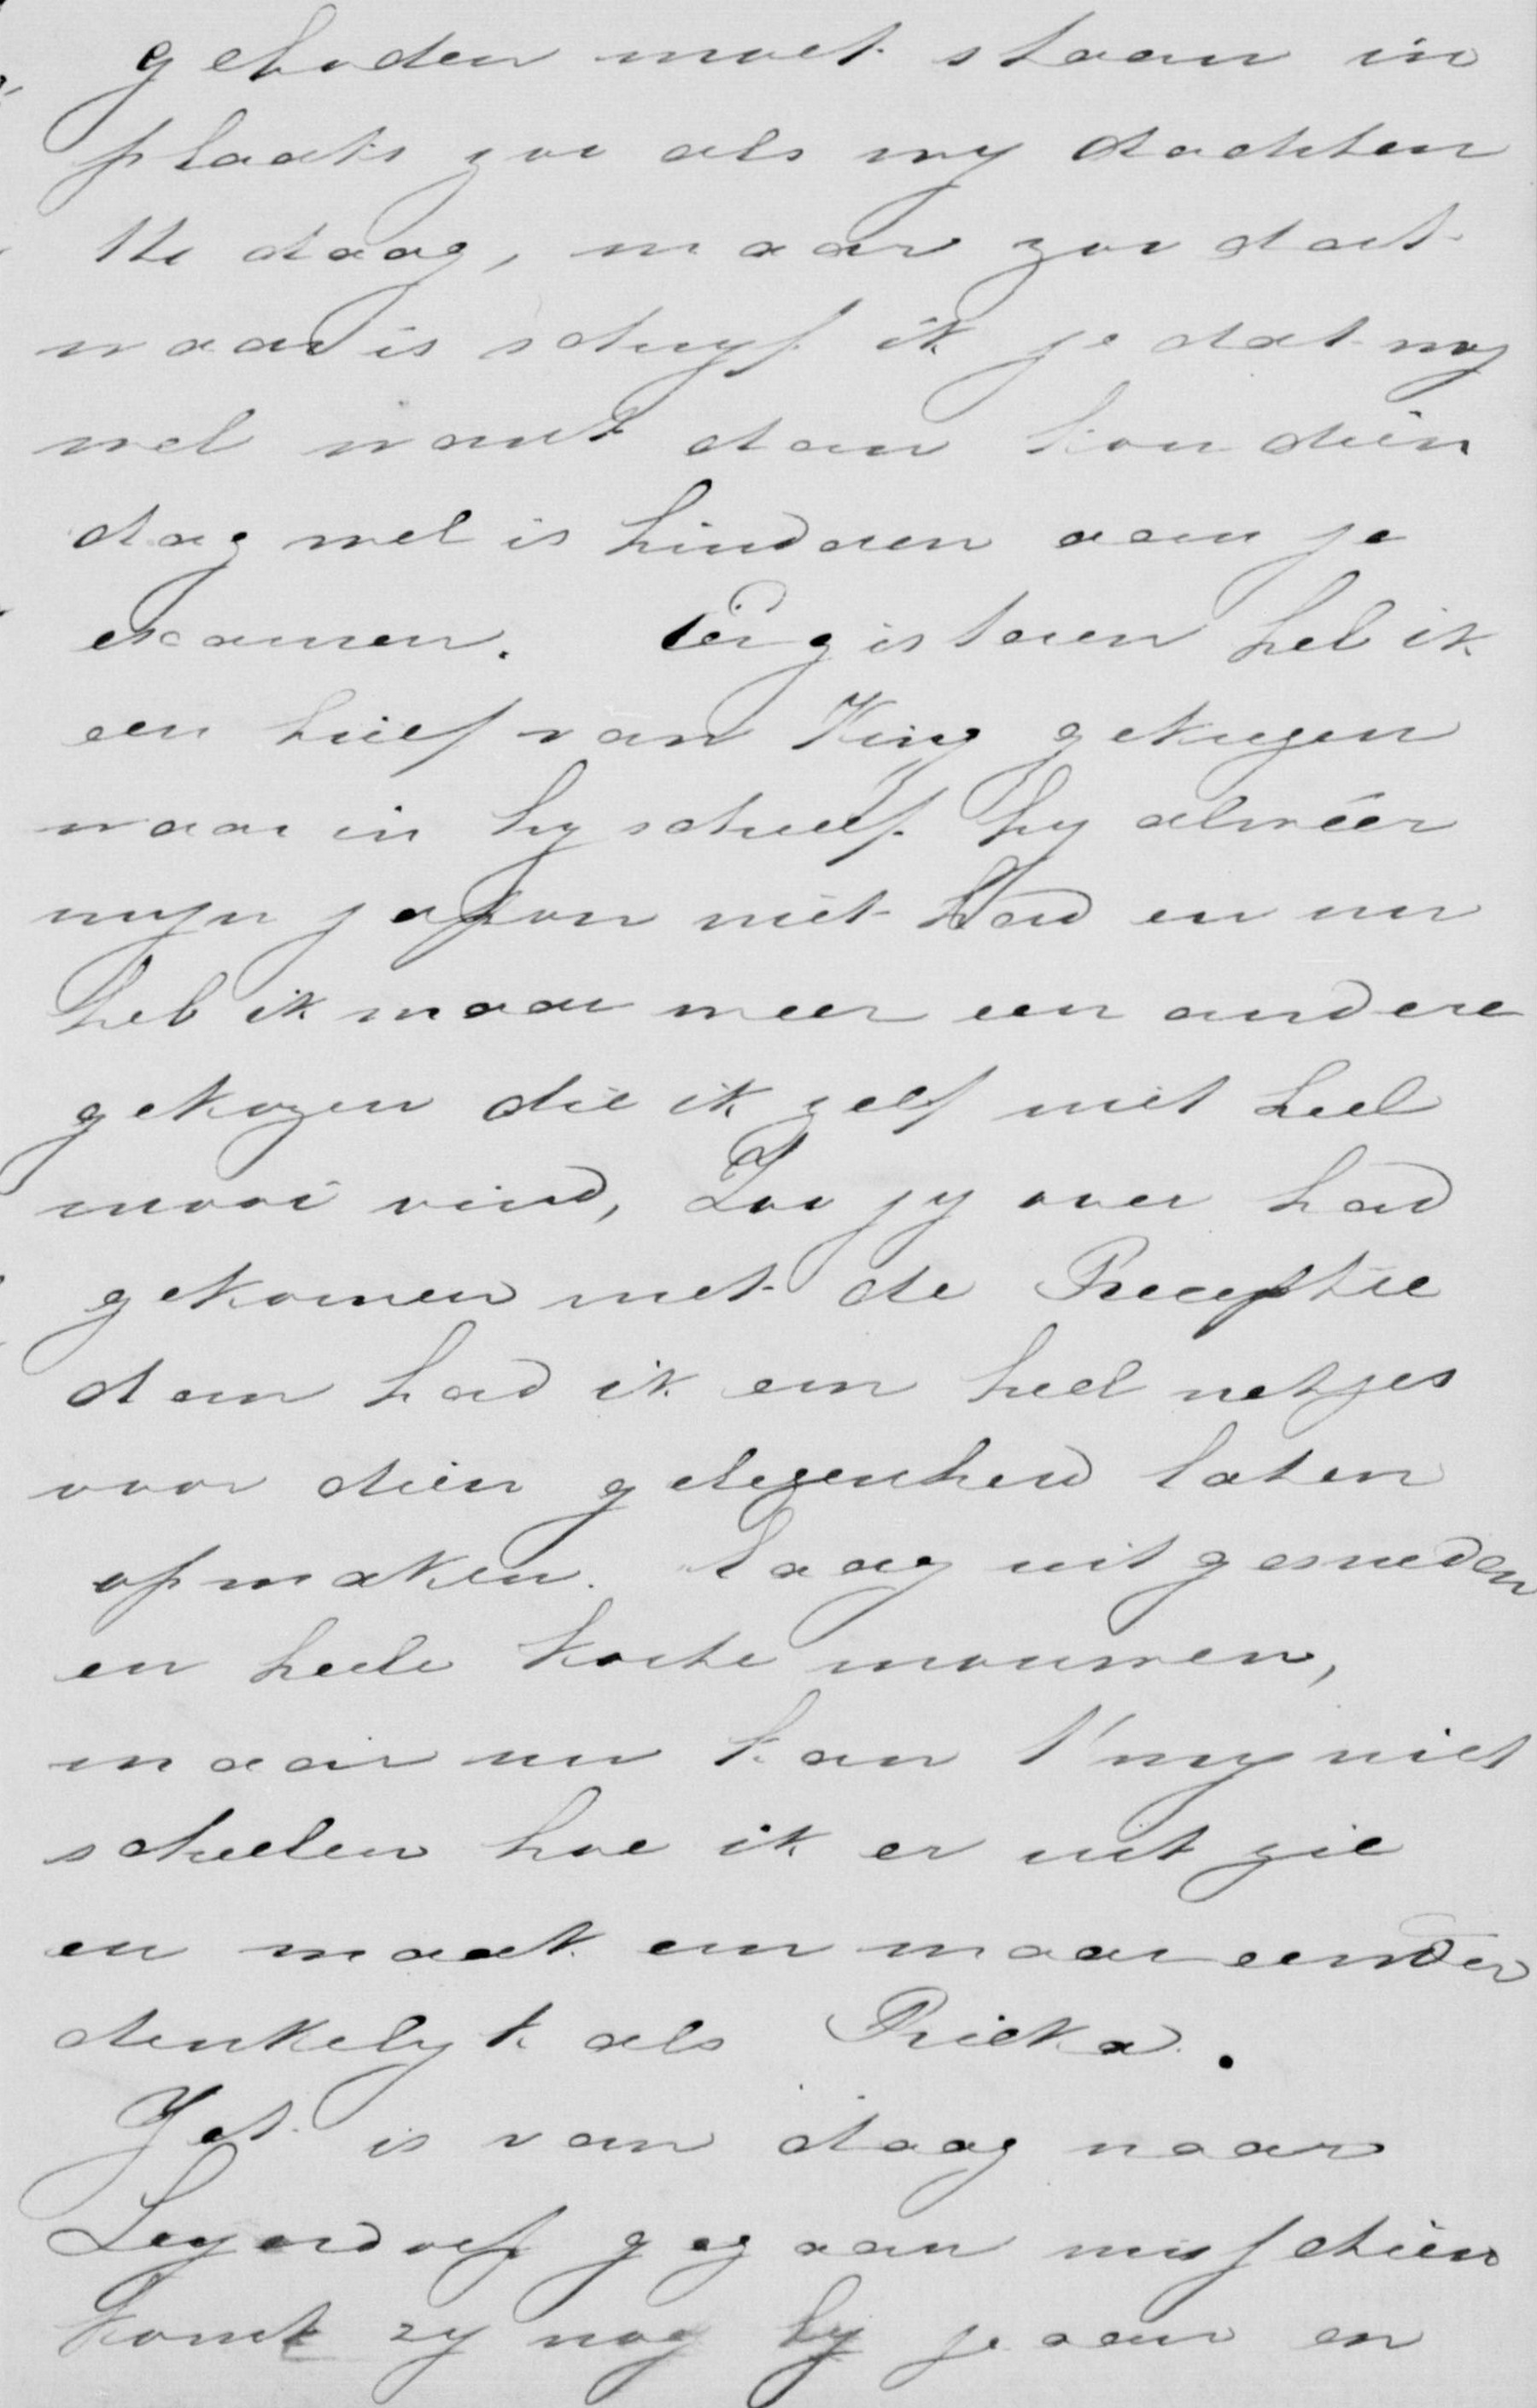 geboden moet staan in
plaats zoo als wy dachten
11e daag, maar zoo dat
waar is schryf ik je dat nog
wel want dan kon dien
dag wel is hinderen aan je
examen. Eergisteren heb ik
een brief van King gekregen
waar in hy schreef hy alwéér
myn japon niet had en nu
heb ik maar weer een andere
gekozen die ik zelf niet heel
mooi vind, Zoo jy over had
gekomen met de Receptie
dan had ik em heel netjes
voor dien gelegenheid laten
opmaken. laag uitgesneden
en heele korte mouwen,
maar nu kan 't my niet
scheelen hoe ik er uit zie
en maak em maar eender
denkelyk als Rieka.
Jet is van daag naar
Leyendorp gegaan misschien
komt zy nog by je aan en